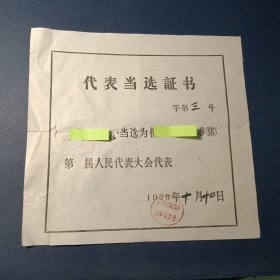 代表当选証书
字第三号
当选为 乡(镇)
第 届人民代表大会代表
1956年十月十四日